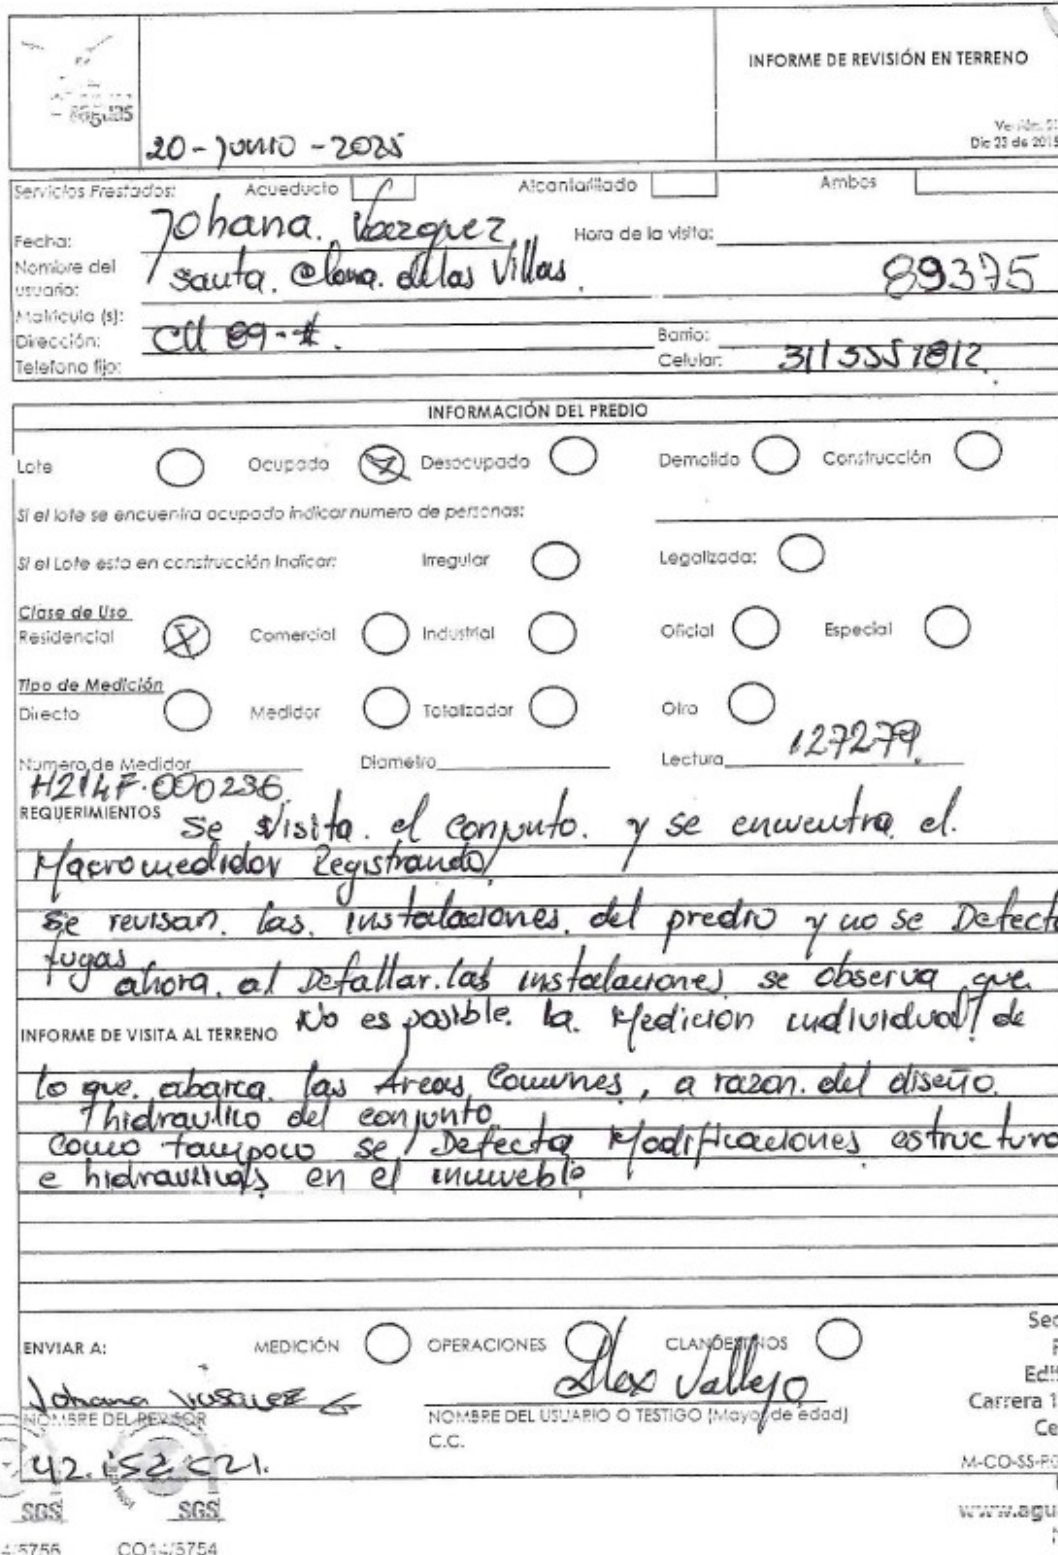 INFORME DE REVISIÓN EN TERRENO
aguas
Versión:
Dic 23 de 2015
20-junio-2025
Servicios Prestados: Acueducto Alcantarillado Ambos
Johana. Vazquez
Fecha: Hora de la visita:
Nombre del usuario: Santa. Clara. de las Villas. 89375
Matrícula (s):
Dirección: Cll 89-1. Barrio:
Telefono fijo: Celular: 311 3551812.
INFORMACIÓN DEL PREDIO
Lote Ocupado X Desocupado Demolido Construcción
Si el lote se encuentra ocupado indicar numero de personas:
Si el Lote esta en construcción Indicar: Irregular Legalizada:
Clase de Uso
Residencial X Comercial Industrial Oficial Especial
Tipo de Medición
Directo Medidor Totalizador Otro
Numero de Medidor Diametro Lectura 127279.
H214F.000236.
REQUERIMIENTOS Se visita. el conjunto. y se encuentra. el.
Macromedidor Registrando
se revisan. las. instalaciones. del predio y no se Detecta
fugas
ahora. al Detallar. las instalaciones se observa que.
INFORME DE VISITA AL TERRENO No es posible. la. Medición individual de
lo que. abarca. las Areas Comunes, a razon. del diseño.
hidraulico del conjunto
Como tampoco se Detecta Modificaciones estructura
e hidraulicas en el inmueble
ENVIAR A: MEDICIÓN OPERACIONES CLANDESTINOS
Johana Vasquez G
Alex Vallejo
NOMBRE DEL REVISOR NOMBRE DEL USUARIO O TESTIGO (Mayor de edad)
C.C.
Sec
Edif
Carrera 1
Ce
M-CO-SS-F0
www.agu
SGS SGS
CO14/5754